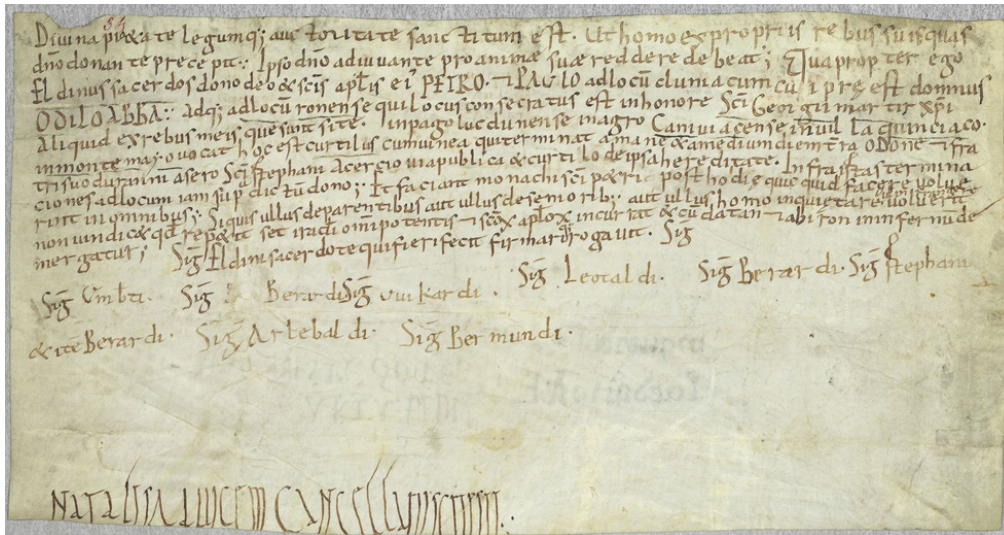 34
Divina pi&ate legumq; auctoritate sanctitum est. Ut homo ex propriis rebus suis quas
dño donante precepit; Ipso dño adiuvante pro animæ suæ reddere debeat; Qua propter ego
Eldinus sacerdos dono deo & scīs aplīs ei' PETRO & PAULO ad locū cluniacum cui pręest domnus
ODILO ABBA; Adq; ad locū ronense qui locus consecratus est in honore Scī Georgii martir xpī
Aliquid ex rebus meis que sunt site. in pago lucdunense in agro Caniviacense in villa quinciaco.
in monte maiovo vocat hoc est curtilus cum vinea qui terminat a mane & a medium diem tra Odone & fra
tri suo durannū a sero Scī Stephani a cercio via publica & curtilo de ipsa hereditate. Infra istas termina
ciones ad locum iam sup dictū dono; Et faciant monachi scī p&ri post hodię quic quid facere volue
rint in omnibus; Si quis ullus de parentibus aut ullus de seniorib; aut ullus homo inquietare voluerit
non vindic& qd rep&it set irā dī omīpotentis & scōx aplōx incurrat & cū datan & abiron in infernū de
mergatur; Sig Eldini sacerdote qui fieri fecit firmar rogavit. Sig
Sig Umbti. Sig Berardi Sig Wikardi. Sig Leotaldi. Sig Berardi. Sig Stephani
& itē Berardi. Sig Arlebaldi. Sig Bermundi.
NATALIS